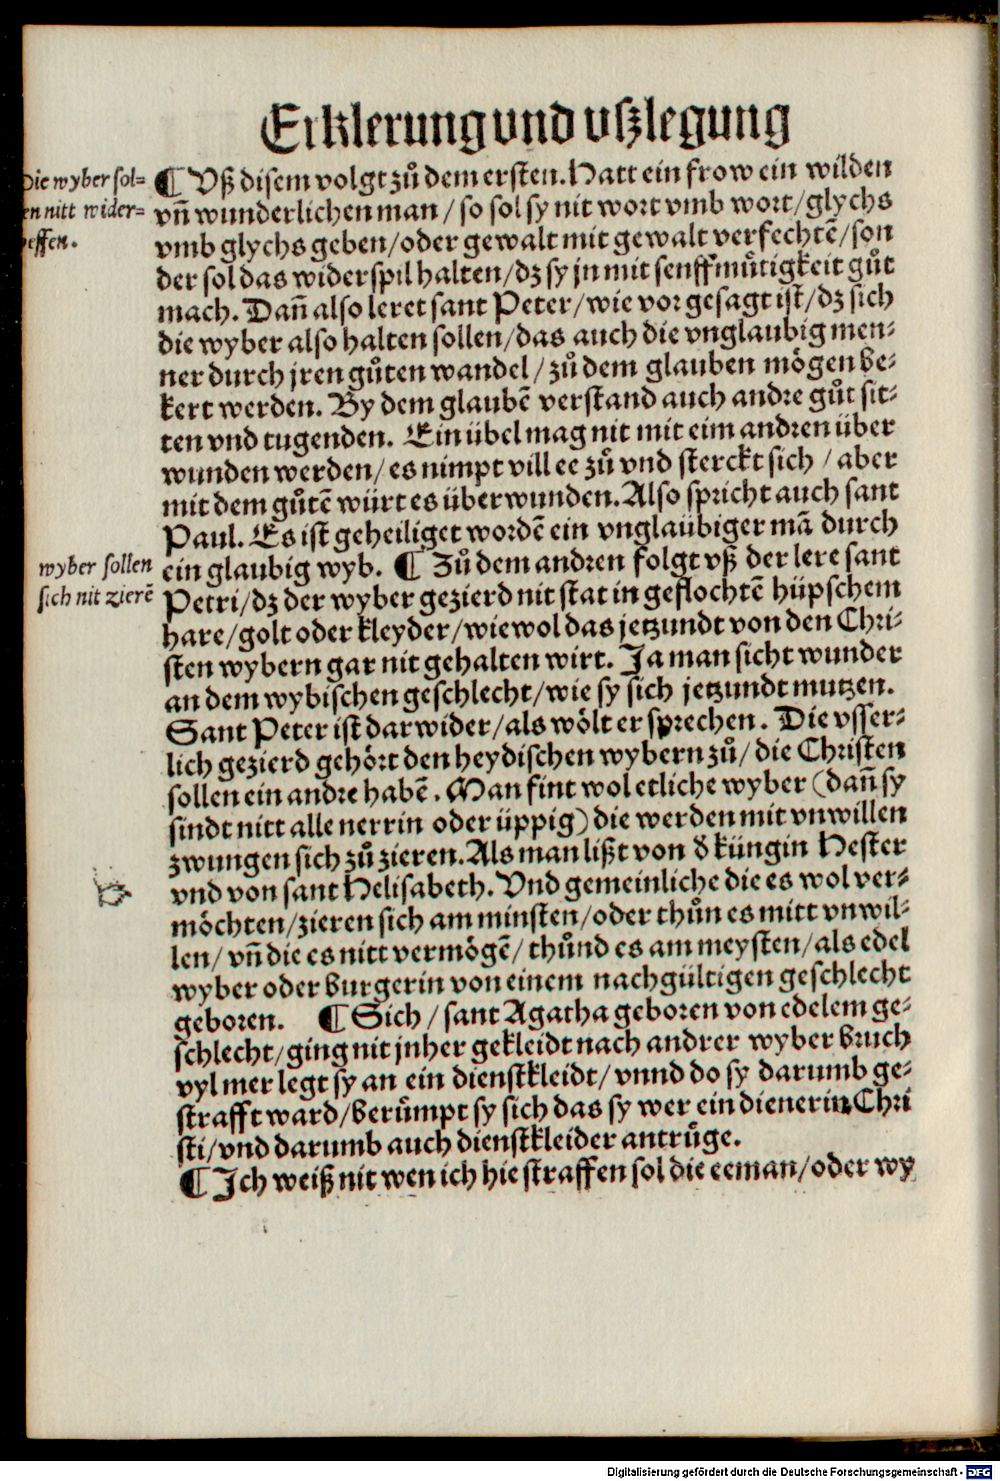 Erklerung vnd vſzlegung
Die wyber ſol⸗
en nitt wider⸗
effen.
¶ Vß diſem volgt zů dem erſten. Hatt ein frow ein wilden
vñ wunderlichen man / ſo ſol ſy nit wort vmb wort/glychs
vmb glychs geben/oder gewalt mit gewalt verfechtē/ſon
der ſol das widerſpil halten/dz ſy jn mit ſenffmůtigkeit gůt
mach. Dañ alſo leret ſant Peter/wie vor geſagt iſt/dz ſich
die wyber alſo halten ſollen/das auch die vnglaubig men⸗
ner durch jren gůten wandel / zů dem glauben mögen be⸗
kert werden. By dem glaubē verſtand auch andre gůt ſit⸗
ten vnd tugenden. Ein übel mag nit mit eim andren über
wunden werden/es nimpt vill ee zů vnd ſterckt ſich / aber
mit dem gůtē würt es überwunden. Alſo ſpricht auch ſant
Paul. Es iſt geheiliget wordē ein vnglaübiger mā durch
ein glaubig wyb. ¶ Zů dem andren folgt vß der lere ſant
wyber ſollen
ſich nit zierē
Petri/dz der wyber gezierd nit ſtat in geflochtē hüpſchem
hare/golt oder kleyder/wiewol das jetzundt von den Chri⸗
ſten wybern gar nit gehalten wirt. Ja man ſicht wunder
an dem wybiſchen geſchlecht/wie ſy ſich jetzundt mutzen.
Sant Peter iſt darwider/als wölt er ſprechen. Die vſſer⸗
lich gezierd gehört den heydiſchen wybern zů/ die Chriſten
ſollen ein andre habē. Man fint wol etliche wyber (dañ ſy
ſindt nitt alle nerrin oder üppig) die werden mit vnwillen
zwungen ſich zů zieren. Als man lißt von d̓ küngin Heſter
vnd von ſant Heliſabeth. Vnd gemeinliche die es wol ver⸗
möchten/zieren ſich am minſten/oder thůn es mitt vnwil⸗
len/ vñ die es nitt vermögē/ thůnd es am meyſten/als edel
wyber oder burgerin von einem nachgültigen geſchlecht
geboren. ¶ Sich / ſant Agatha geboren von edelem ge⸗
ſchlecht/ging nit jnher gekleidt nach andrer wyber bruch
vyl mer legt ſy an ein dienſtkleidt/ vnnd do ſy darumb ge⸗
ſtrafft ward/berůmpt ſy ſich das ſy wer ein dienerin Chri
ſti/vnd darumb auch dienſtkleider antrůge.
¶ Ich weiß nit wen ich hie ſtraffen ſol die eeman/oder wy
Digitalisierung gefördert durch die Deutsche Forschungsgemeinschaft - DFG